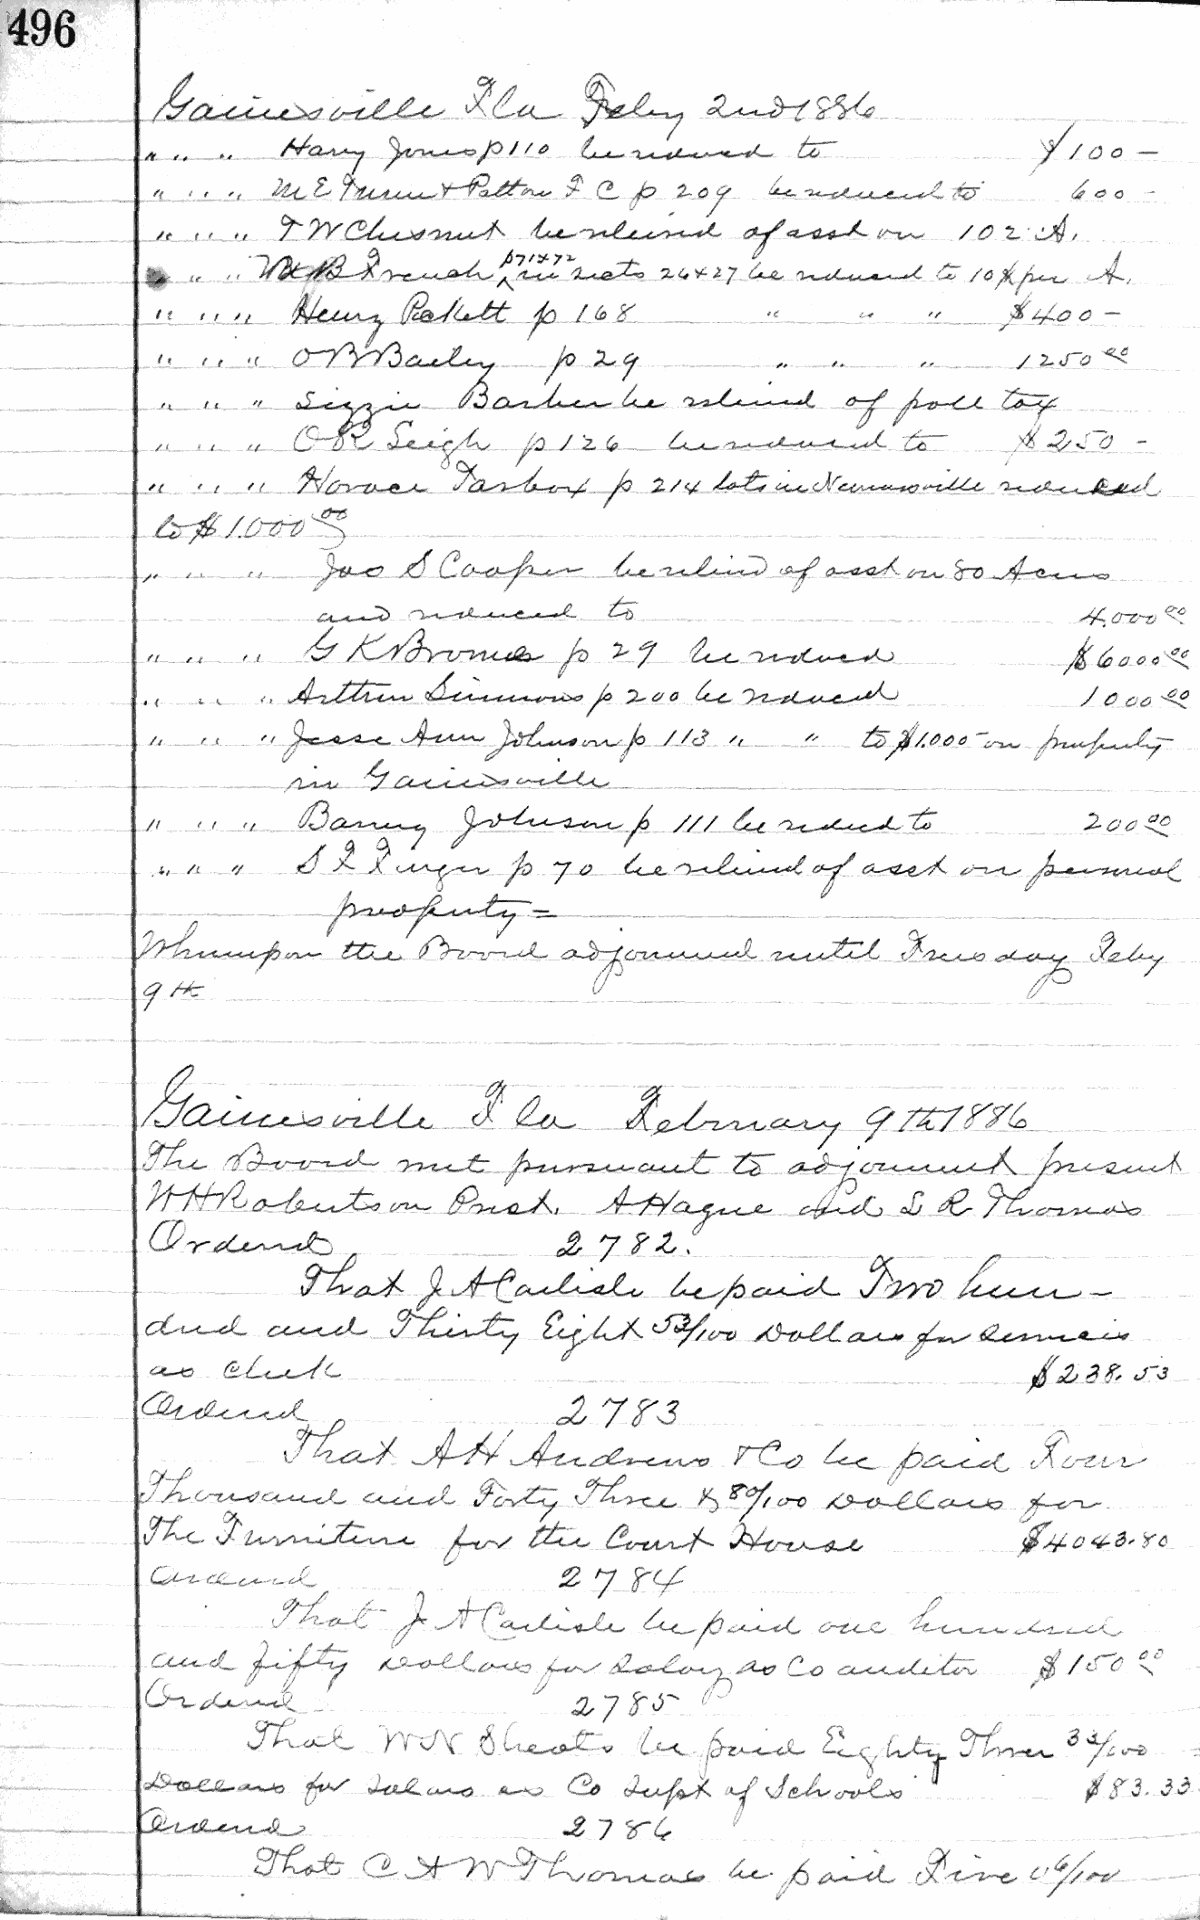 496
Gainesville Fla Feby 2nd 1886
" " " Harry Jones p 110 be reduced to $100 -
" " " M E Turner & Patton F C p 209 be reduced to 600 -
" " " T W Chesnut be relieved of asst on 102 A.
" " " B French p 71 & 72 in sects 26 & 27 be reduced to 10 $ per A.
" " " Henry Pickett p 168 " " " $400 -
" " " O B Bailey p 29 " " " 1250 00
" " " Lizzie Barber be relieved of poll tax
" " " O R Leigh p 126 be reduced to $250 -
" " " Horace Tarbox p 214 lots in Newnansville reduced
to $1.000 00
" " " Jas S Cooper be relievd of asst on 80 Acres
and reduced to 4.000 00
" " " G K Broome p 29 be reduced $6000 00
" " " Arthur Simmons p 200 be reduced 1000 00
" " " Jesse Ann Johnson p 113 " " to $1.000 - on property
in Gainesville
" " " Barney Johnson p 111 be reduced to 200 00
" " " S F Finger p 70 be relieved of asst on personal
property =
Whereupon the Board adjourned until Tuesday Feby
9th
Gainesville Fla February 9th 1886
The Board met pursuant to adjournment present
W H Robertson Prest. A Hague and L R Thomas
Ordered 2782.
That J A Carlisle be paid Two hun-
dred and Thirty Eight 53/100 Dollars for services
as clerk $238.53
Ordered 2783
That A H Andrews & Co be paid Four
Thousand and Forty Three & 80/100 Dollars for
The Furniture for the Court House $4043.80
Ordered 2784
That J A Carlisle be paid one hundred
and fifty Dollars for Salary as Co auditor $150 00
Ordered 2785
That W N Sheats be paid Eighty Three 33/100
Dollars for as Co Supt of Schools $83.33
Ordered 2786
That C A W Thomas be paid Five 06/100